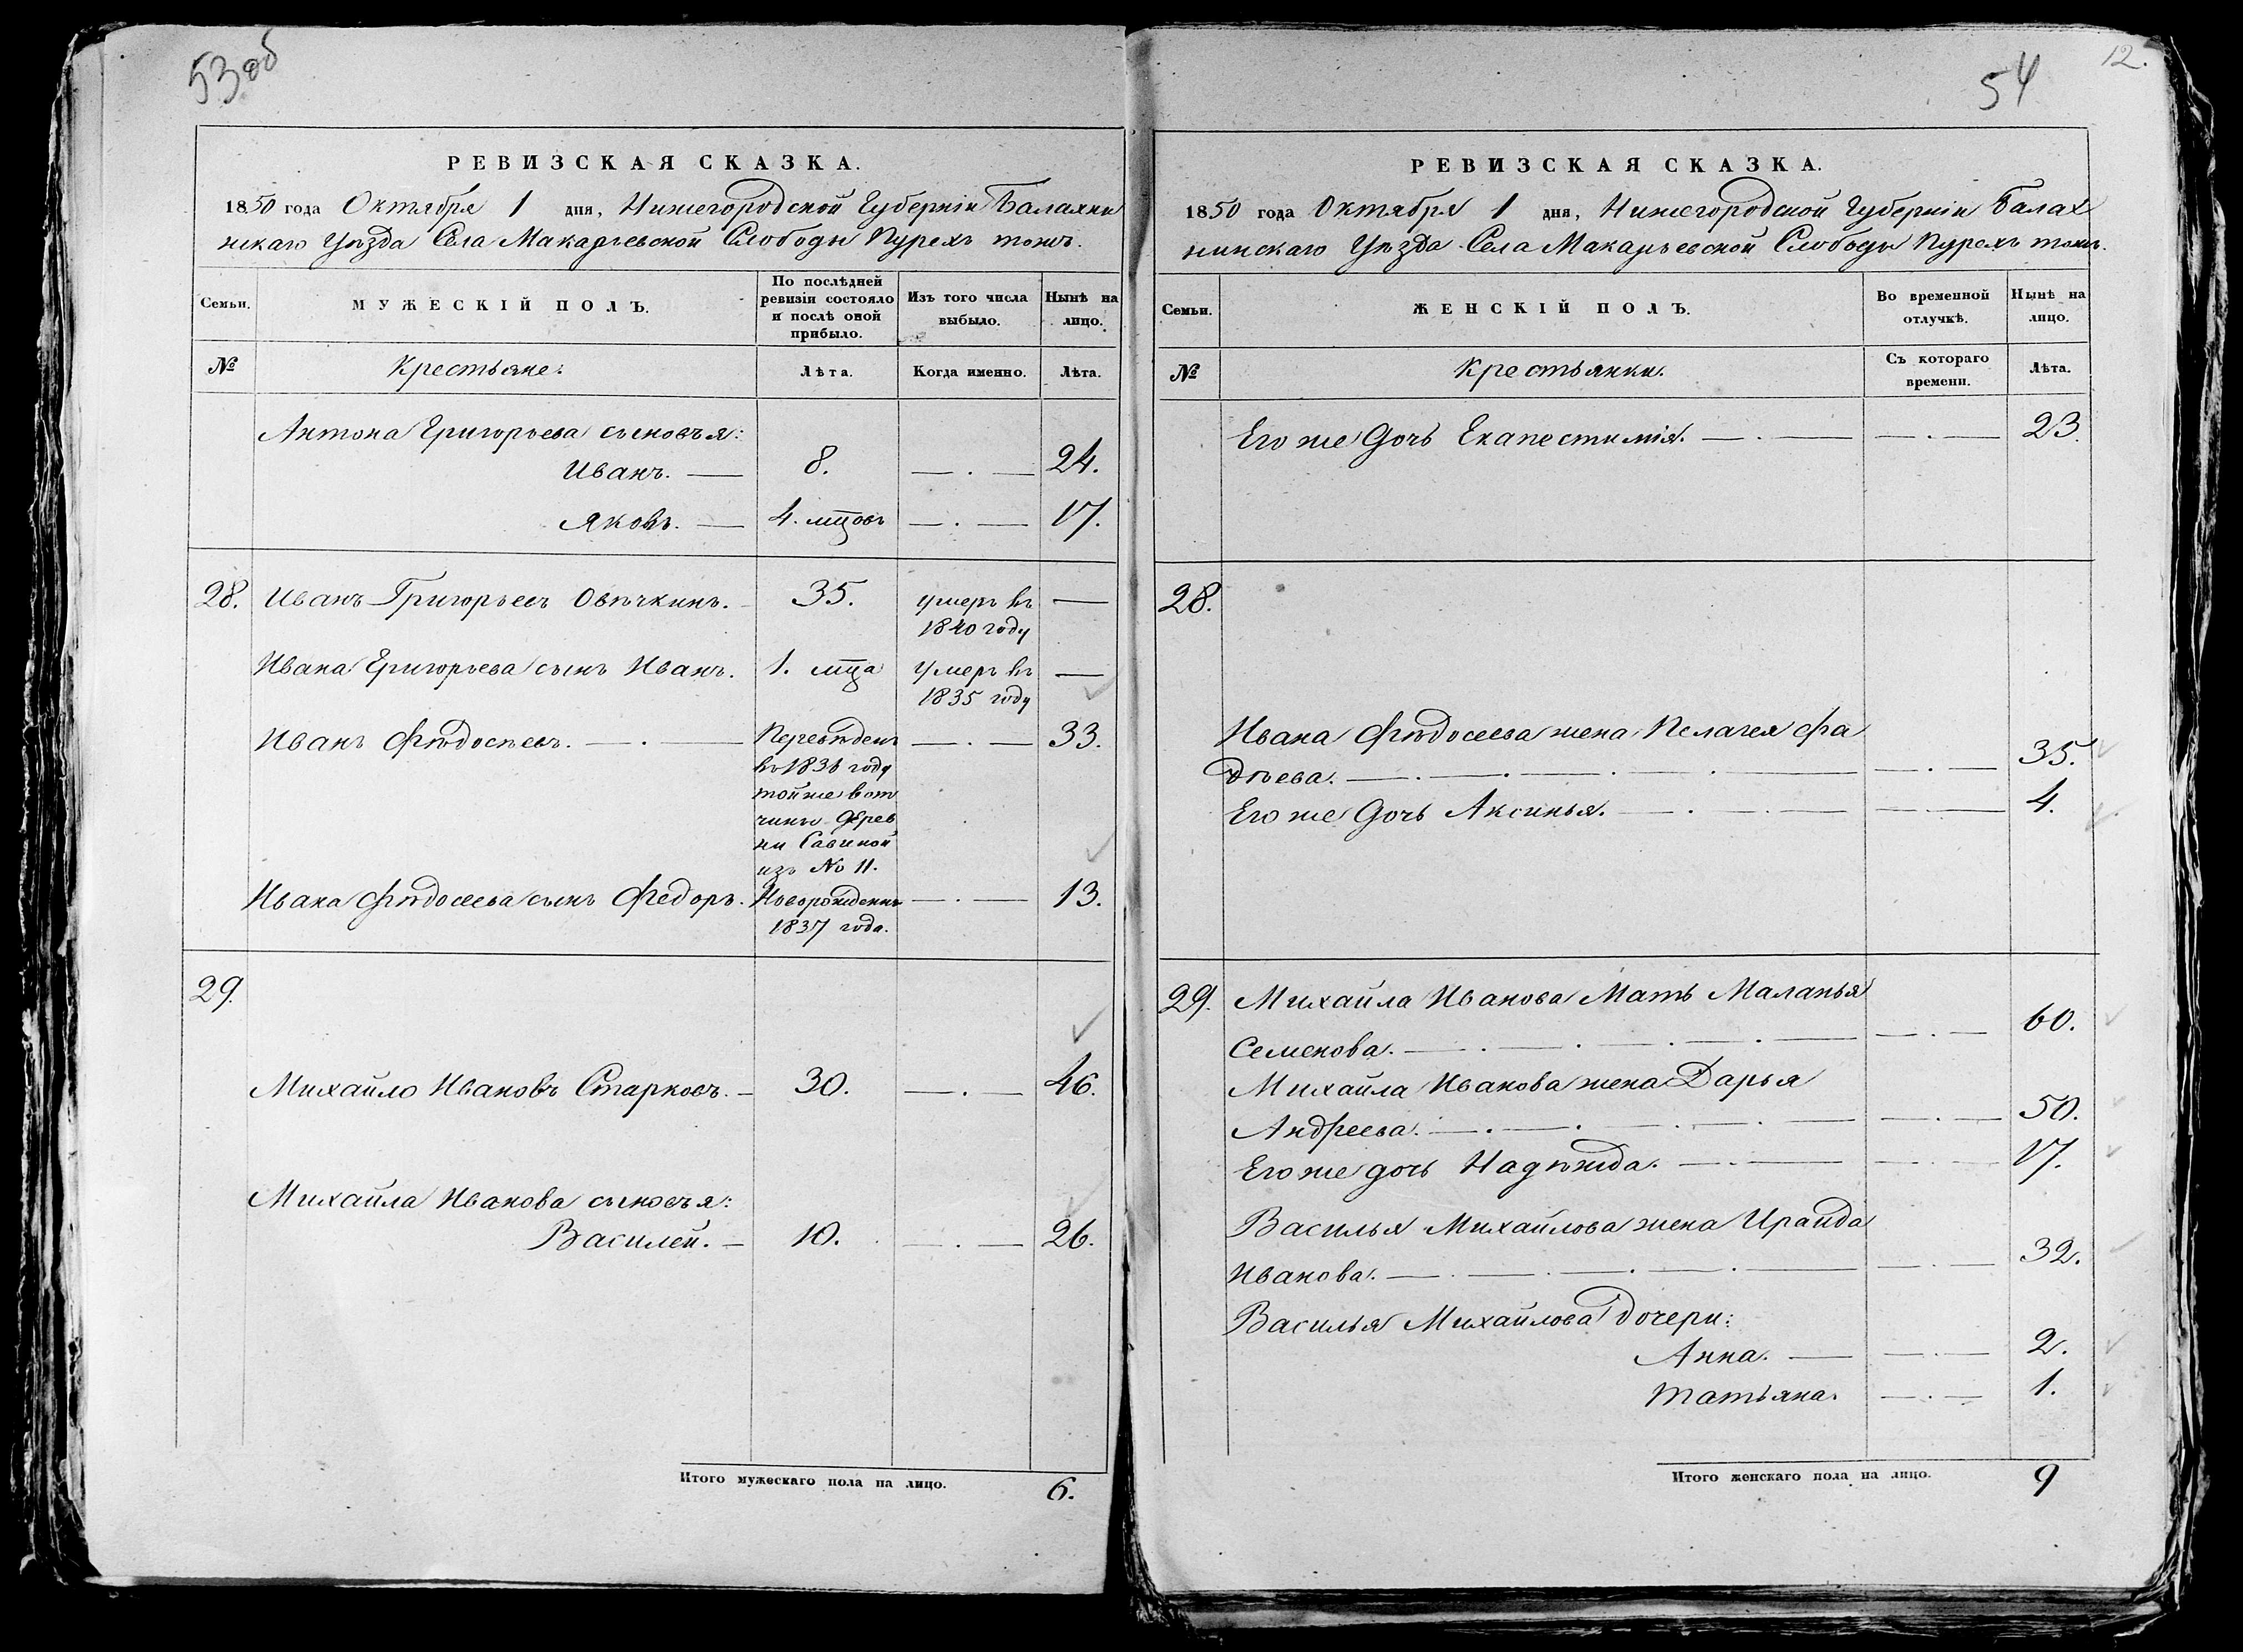 53 об
РЕВИЗСКАЯ СКАЗКА.
1850 года Октября 1 дня, Нижегородской Губерніи Балахни
нскаго Уѣзда Села Макарьевской Слободы Пурехъ тожъ.
Семьи.
МУЖЕСКІЙ ПОЛЪ.
По послѣдней
ревизіи состояло
и послѣ оной
прибыло.
Изъ того числа
выбыло.
Нынѣ на
лицо.
№
Крестьяне:
Лѣта.
Когда именно.
Лѣта.
Антона Григорьева сыновья:
Иванъ. — 8. — . — 24.
Яковъ. — 4. мцовъ — . — 17.
28. Иванъ Григорьевъ Овѣчкинъ. 35. умеръ въ —
1840 году
Ивана Григорьева сынъ Иванъ. 1. мца умеръ въ —
1835 году
Иванъ Фѣдосѣевъ. — . — Перевѣденъ — . — 33.
въ 1836 году
тойже вот
чины дерев
ни Савиной
изъ No 11.
Ивана Фѣдосеева сынъ Федоръ. Новорожденъ — . — 13.
1837 года.
29.
Михайло Ивановъ Старковъ. — 30. — . — 46.
Михайла Иванова сыновья:
Василей. — 10. — . — 26.
Итого мужескаго пола на лицо. 6.
12.
54
РЕВИЗСКАЯ СКАЗКА.
1850 года Октября 1 дня, Нижегородской Губерніи Балах
нинскаго Уѣзда Села Макарьевской Слободы Пурехъ тожъ.
Семьи.
ЖЕНСКІЙ ПОЛЪ.
Во временной
отлучкѣ.
Нынѣ на
лицо.
№
Крестьянки.
Съ котораго
времени.
Лѣта.
Его же дочь Екапестимія. — . — — . — 23.
28.
Ивана Фѣдосеева жена Пелагея Фа
дѣева. — . — . — . — . — — . — 35.
Его же дочь Аксинья. — . — . — — . — 4.
29. Михайла Иванова Мать Маланья
Семенова. — . — . — . — . — — . — 60.
Михайла Иванова жена Дарья
Андреева. — . — . — . — . — — . — 50.
Его же дочь Надѣжда. — . — — . — 17.
Василья Михайлова жена Ираида
Иванова. — . — . — . — . — — . — 32.
Василья Михайлова дочери:
Анна. — — . — 2.
Татьяна. — . — 1.
Итого женскаго пола на лицо. 9